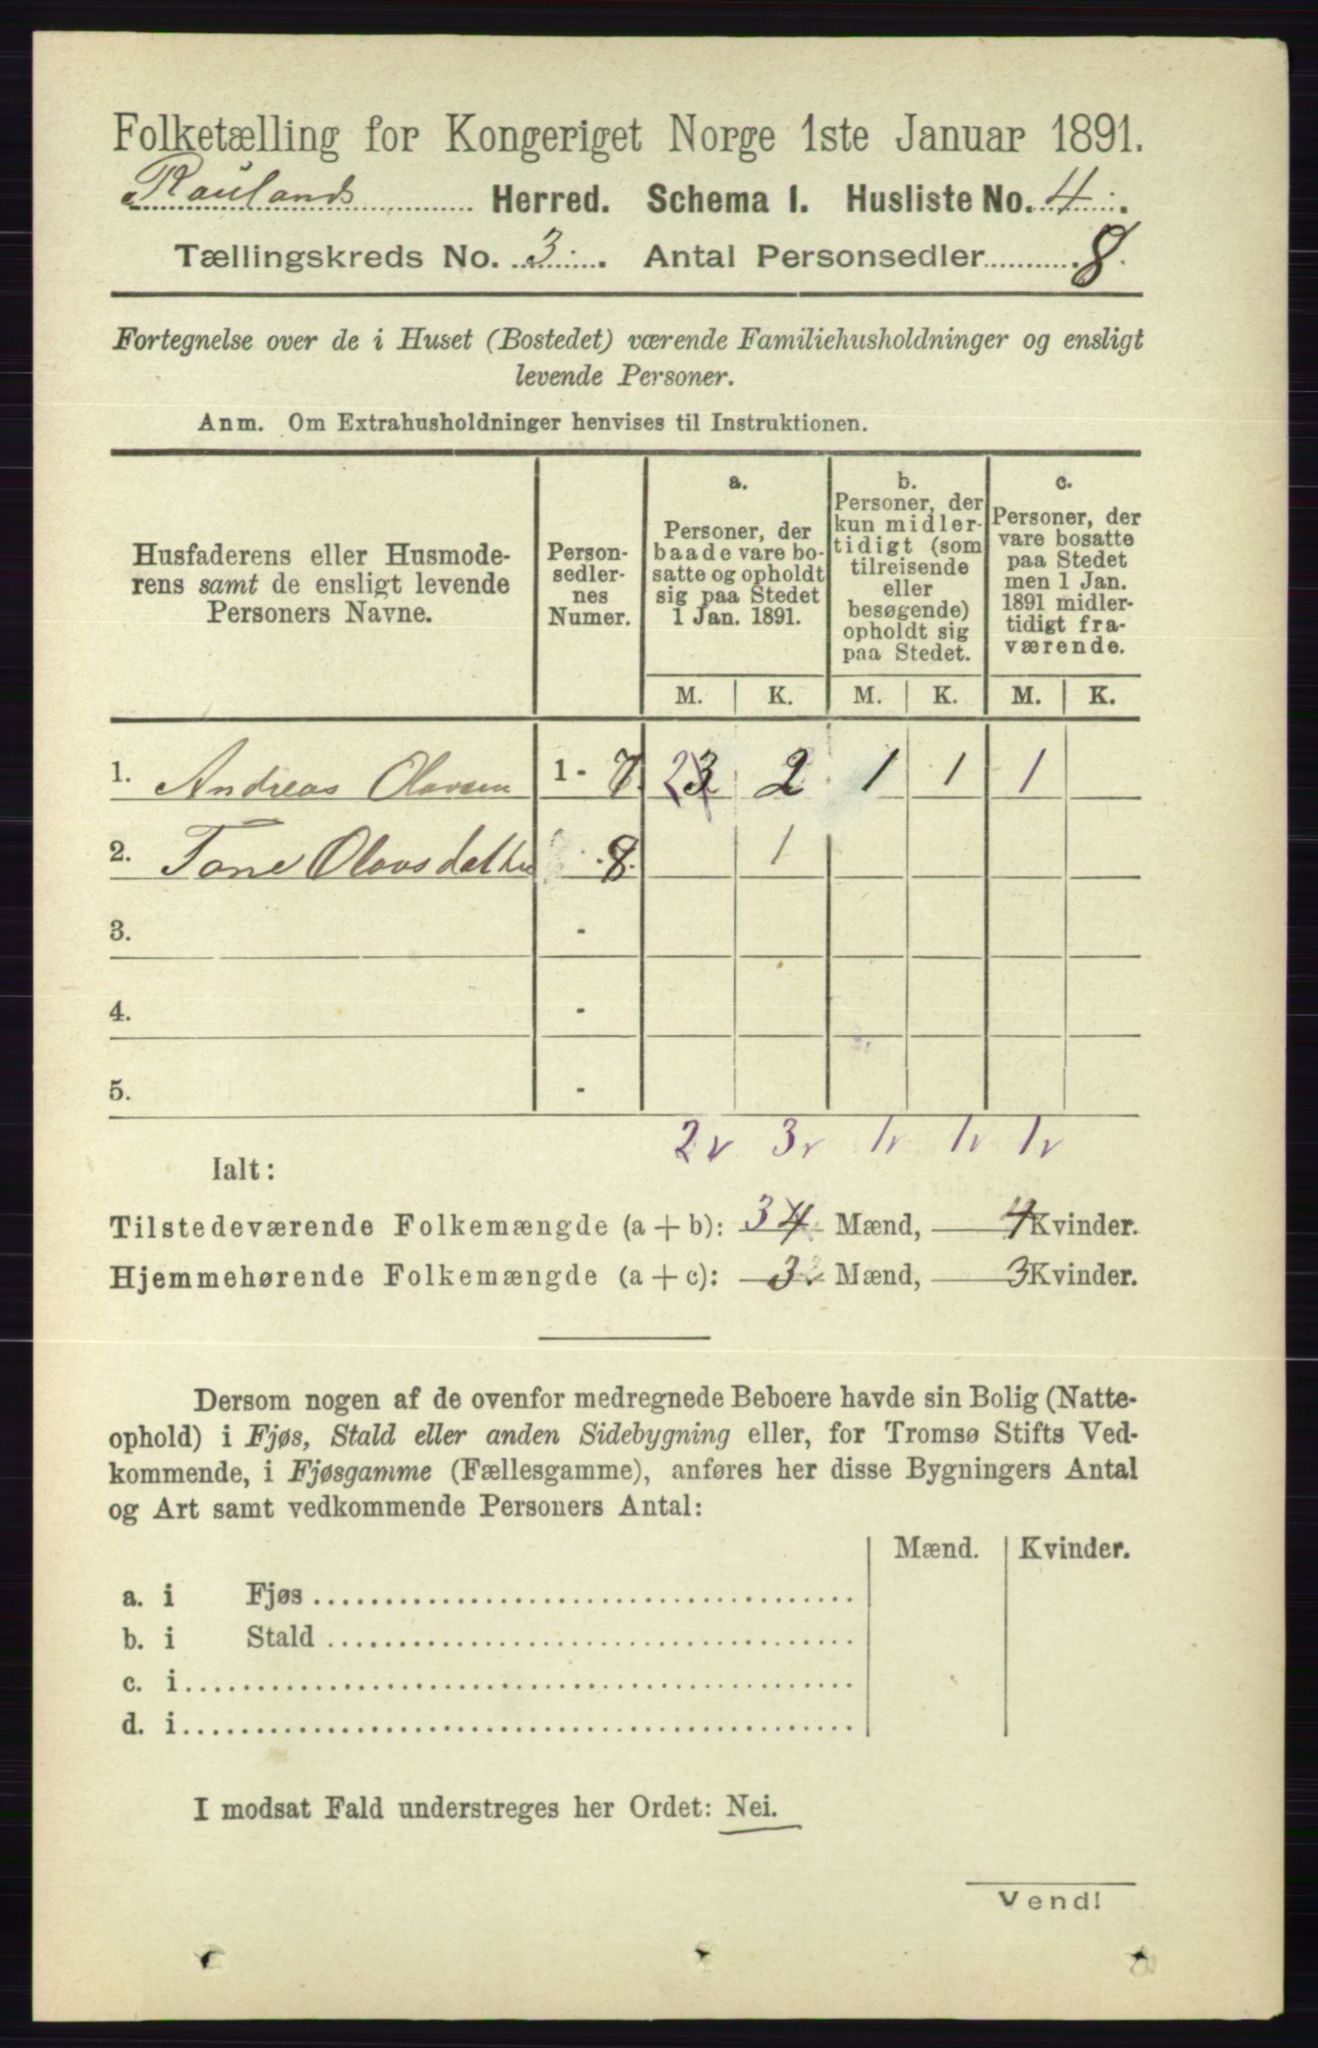 Folketælling for Kongeriget Norge 1ste Januar 1891.
Raulands Herred. Schema I. Husliste No. 4.
Tællingskreds No. 3. Antal Personsedler 8.
Fortegnelse over de i Huset (Bostedet) værende Familiehusholdninger og ensligt
levende Personer.
Anm. Om Extrahusholdninger henvises til Instruktionen.
Husfaderens eller Husmode-
rens samt de ensligt levende
Personers Navne.
Person-
sedler-
nes
Numer.
a.
Personer, der
baade vare bo-
satte og opholdt
sig paa Stedet
1 Jan. 1891.
b.
Personer, der
kun midler-
tidigt (som
tilreisende
eller
besøgende)
opholdt sig
paa Stedet.
c.
Personer, der
vare bosatte
paa Stedet
men 1 Jan.
1891 midler-
tidigt fra-
værende.
M. K. M. K. M. K.
1. Andreas Olavsen 1 - 7. 2 3 2 1 1 1
2. Tone Olavsdatter 8. 1
3. -
4. -
5. -
2 v 3 v 1 v 1 v 1 v
Ialt:
Tilstedeværende Folkemængde (a + b): 3 4 Mænd, 4 Kvinder.
Hjemmehørende Folkemængde (a + c): 3 Mænd, 3 Kvinder.
Dersom nogen af de ovenfor medregnede Beboere havde sin Bolig (Natte-
ophold) i Fjøs, Stald eller anden Sidebygning eller, for Tromsø Stifts Ved-
kommende, i Fjøsgamme (Fællesgamme), anføres her disse Bygningers Antal
og Art samt vedkommende Personers Antal:
Mænd. Kvinder.
a. i Fjøs
b. i Stald
c. i
d. i
I modsat Fald understreges her Ordet: Nei.
Vend!